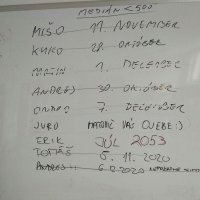 MEDIÁN < 500
MIŠO 11. NOVEMBER
KUKO 28. OKTÓBER
MARTIN 1. DECEMBER
ANDREJ 30. OKTÓBER
ONDRO 7. DECEMBER
JURO MATOVIČ VÁS OJEBE :)
ERIK JÚL 2053
TOMÁŠ 5. 11. 2020
6.12.2020